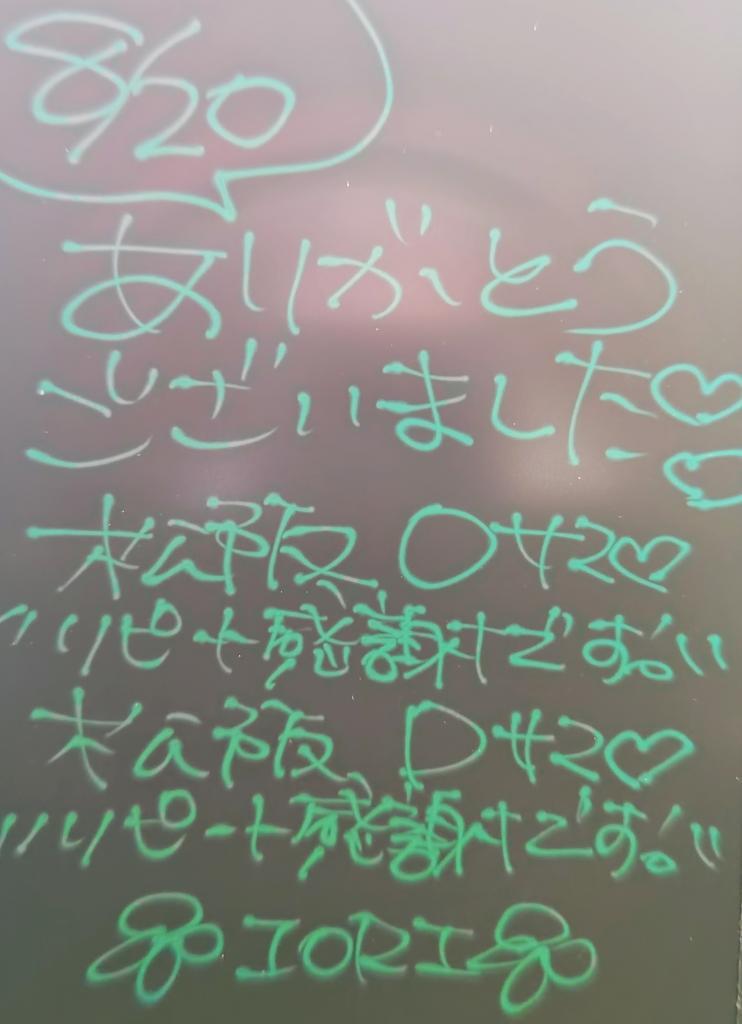 8/20
ありがとう
ございました♡♡
松阪、Oサマ♡
リピート感謝です。
松阪、Dサマ♡
リピート感謝です。
IORI